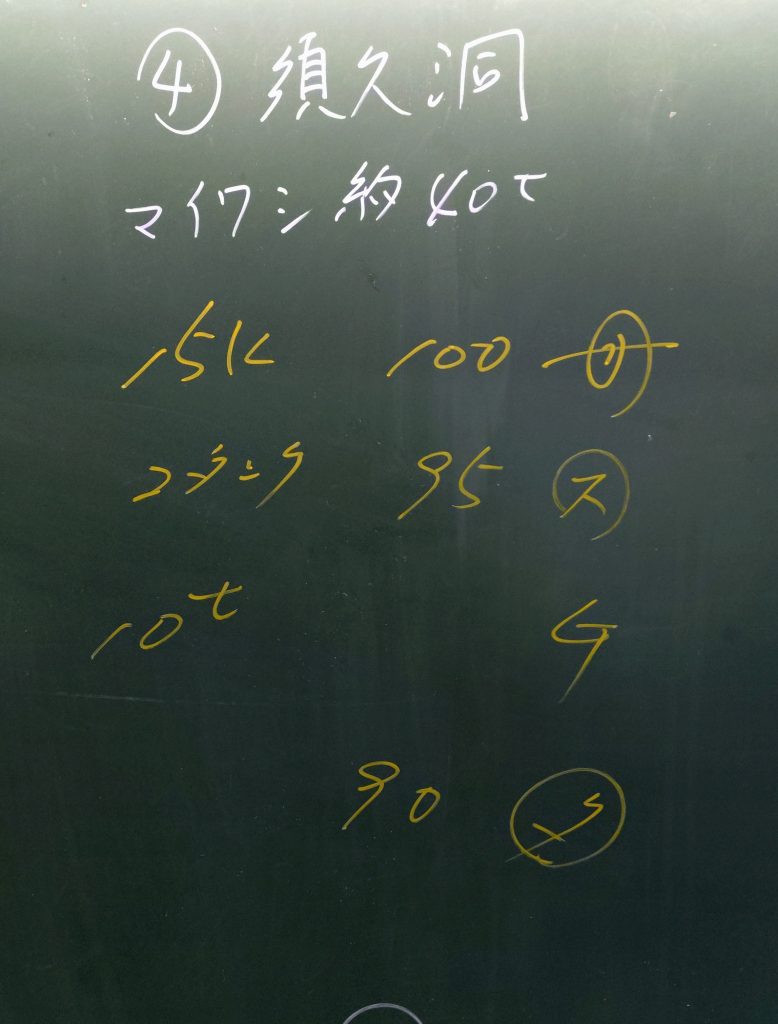 ④ 須久洞
マイワシ 約40t
15K 100
95 ス
10t ケ
90